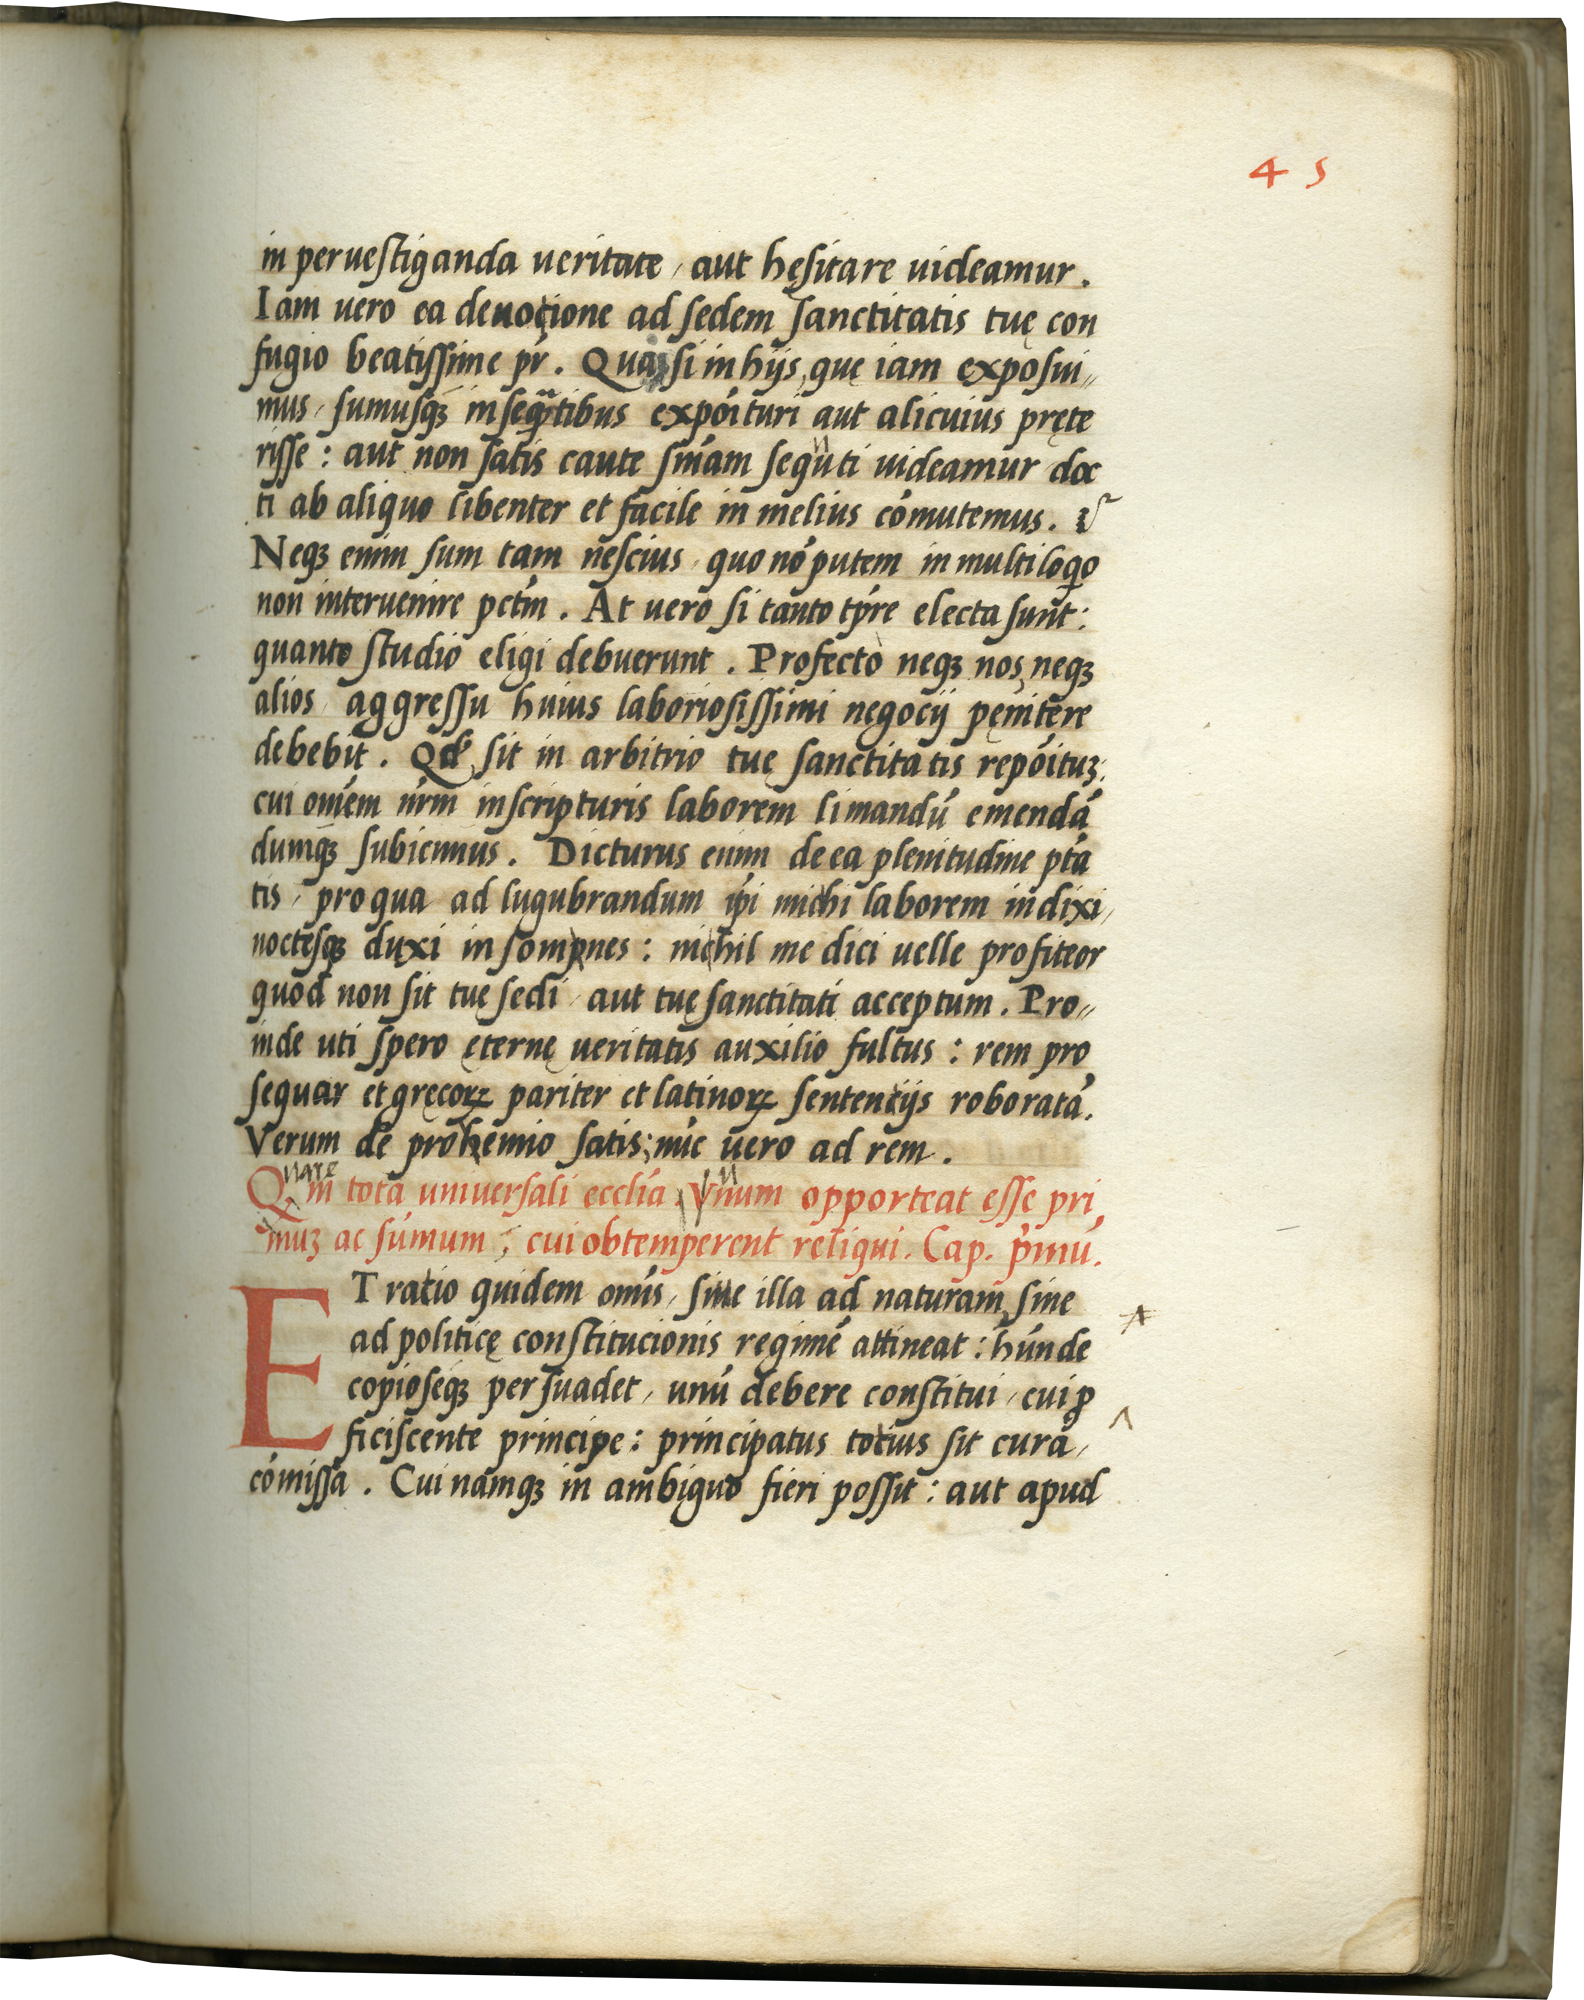 45
in peruestiganda veritate, aut hęsitare uideamur.
Iam uero ea deuocione ad sedem sanctitatis tuę con
fugio beatissime pr̄. Qua si in hijs, quę iam exposui-
mus, sumusq3 in seq̄ntibus expōituri aut alicuius pręte
risse: aut non satis caute sniā̄m seq̄uti uideamur doc
ti ab aliquo libenter et facile in melius cōmutemus.
Neq3 enim sum tam nescius, quo nō putem in multiloqo
non interuenire pctm̄. At uero si tanto tp̄re electa sunt:
quanto studio eligi debuerunt. Profecto neq3 nos, neq3
alios, aggressu huius laboriosissimi negocij pęnitere
debebit. Qd̄ sit in arbitrio tuę sanctitatis repōitu3:
cui om̄em nr̄m in scripturis laborem limandū emendā
dumq3 subicimus. Dicturus enim de ea plenitudine ptā
tis, pro qua ad lugubrandum ip̄i michi laborem indixi,
noctesq3 duxi in sompnes: nichil me dici uelle profiteor
quod non sit tuę sedi, aut tuę sanctitati acceptum. Pro-
inde uti spero ęternę ueritatis auxilio fultus: rem pro
sequar et gręcoꝝ pariter et latinoꝝ sentencijs roboratā.
Verum de prohemio satis; nūc uero ad rem.
Quare
Q in tota uniuersali ecclīa, vnum opporteat esse pri
mu3 ac sūmum, cui obtemperent reliqui. Cap. pr̄mū.
ET racio quidem om̄is, siue illa ad naturam, siue
ad politicę constitucionis regimē attineat: hūnde
copioseq3 persuadet, unū debere constitui, cui ꝓ
ficiscente principe: principatus tocius sit cura,
cōmissa. Cui namq3 in ambiguo fieri possit: aut apud